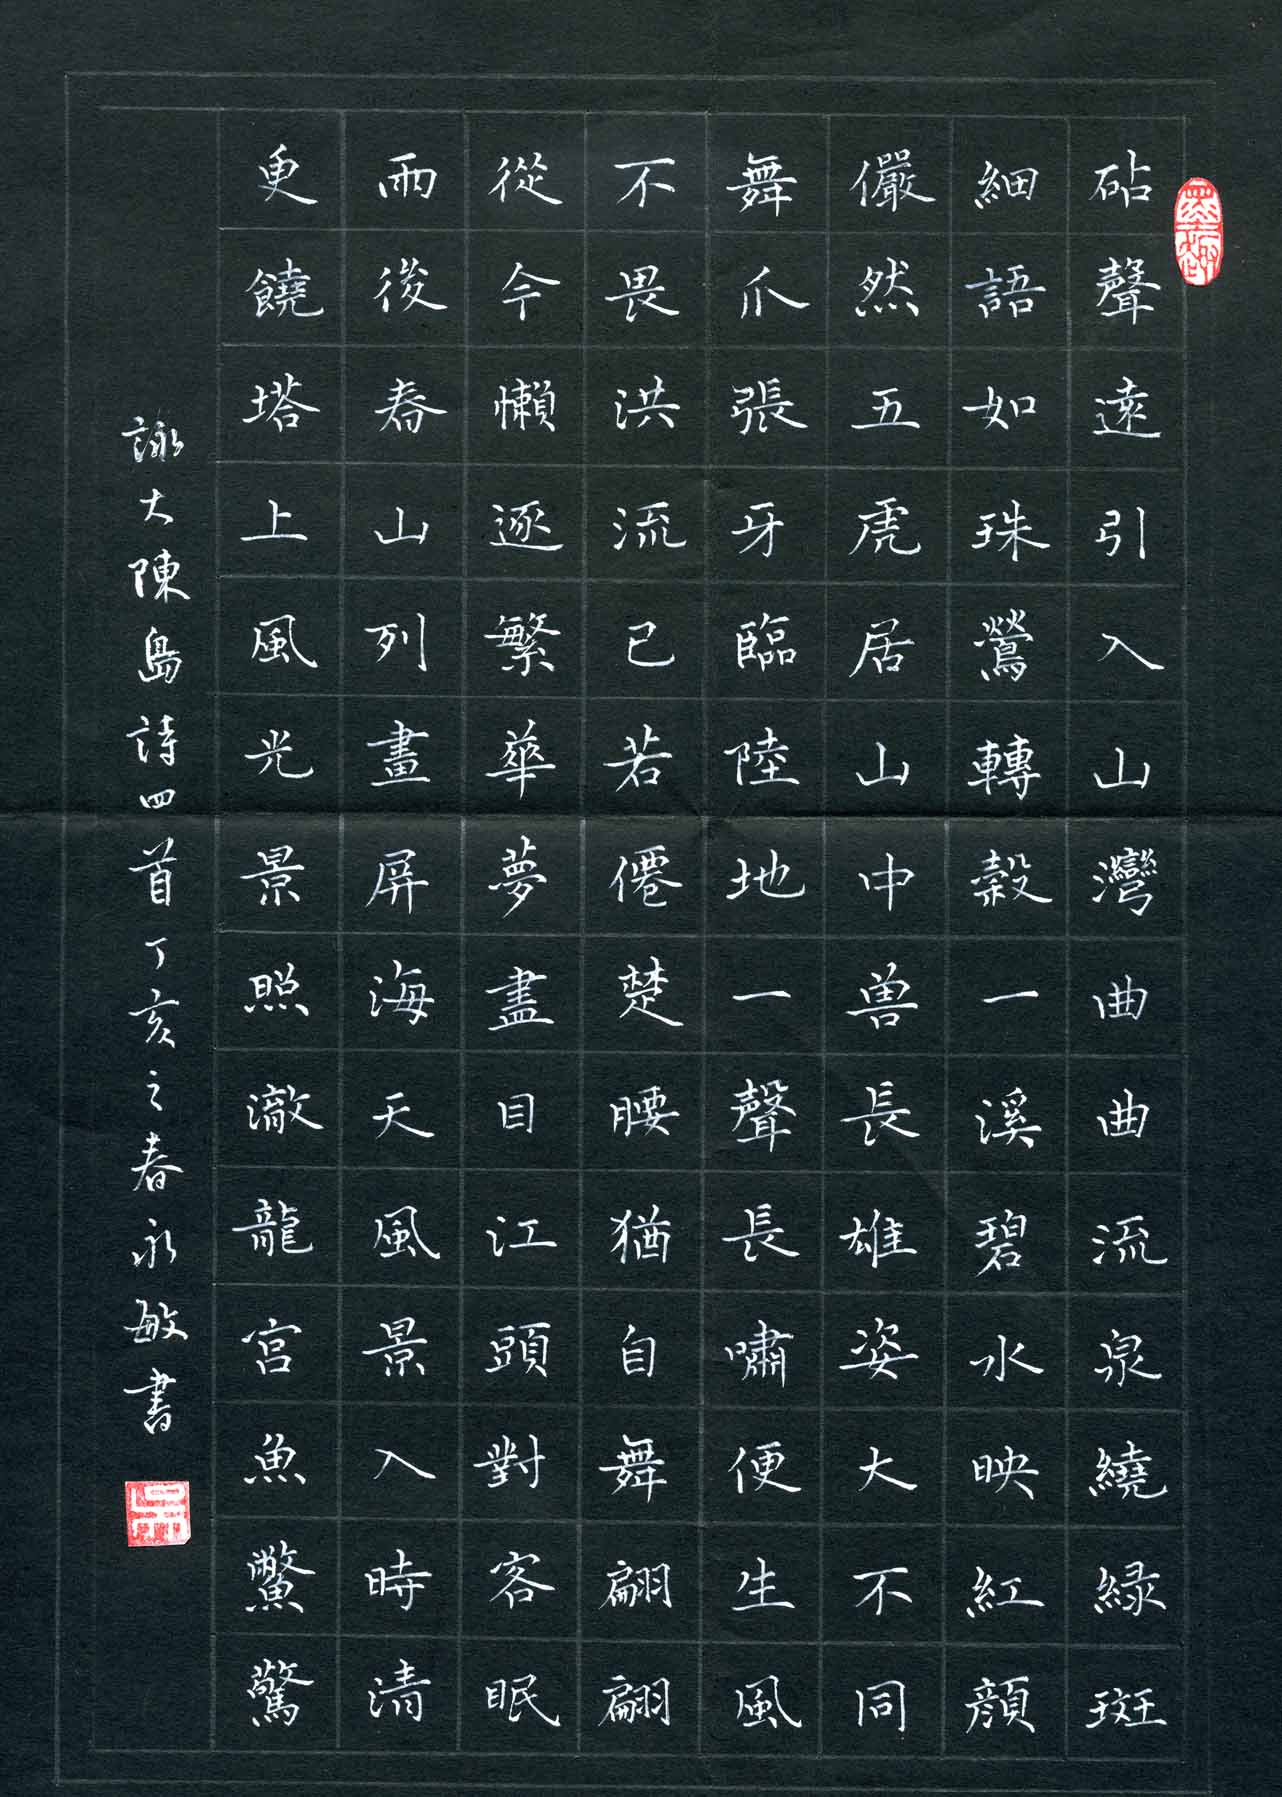 砧聲遠引入山灣曲曲流泉繞緑斑
細語如珠鶯轉穀一溪碧水映紅顔
儼然五虎居山中兽長雄姿大不同
舞爪張牙臨陸地一聲長嘯便生風
不畏洪流已若僊楚腰猶自舞翩翩
從今懶逐繁華夢盡目江頭對客眠
雨後春山列畫屏海天風景入時清
更饒塔上風光景照澈龍宫魚鱉驚
詠大陳島詩四首丁亥之春永敏書